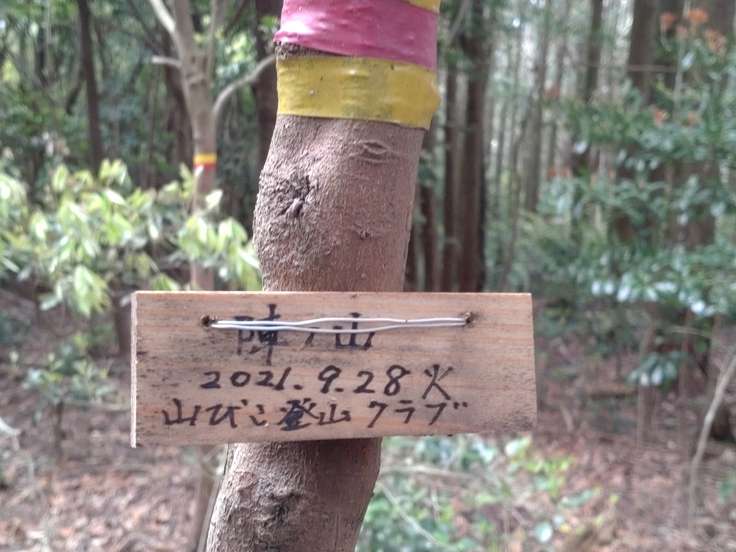 陣ノ山
2021.9.28火
山びこ登山クラブ